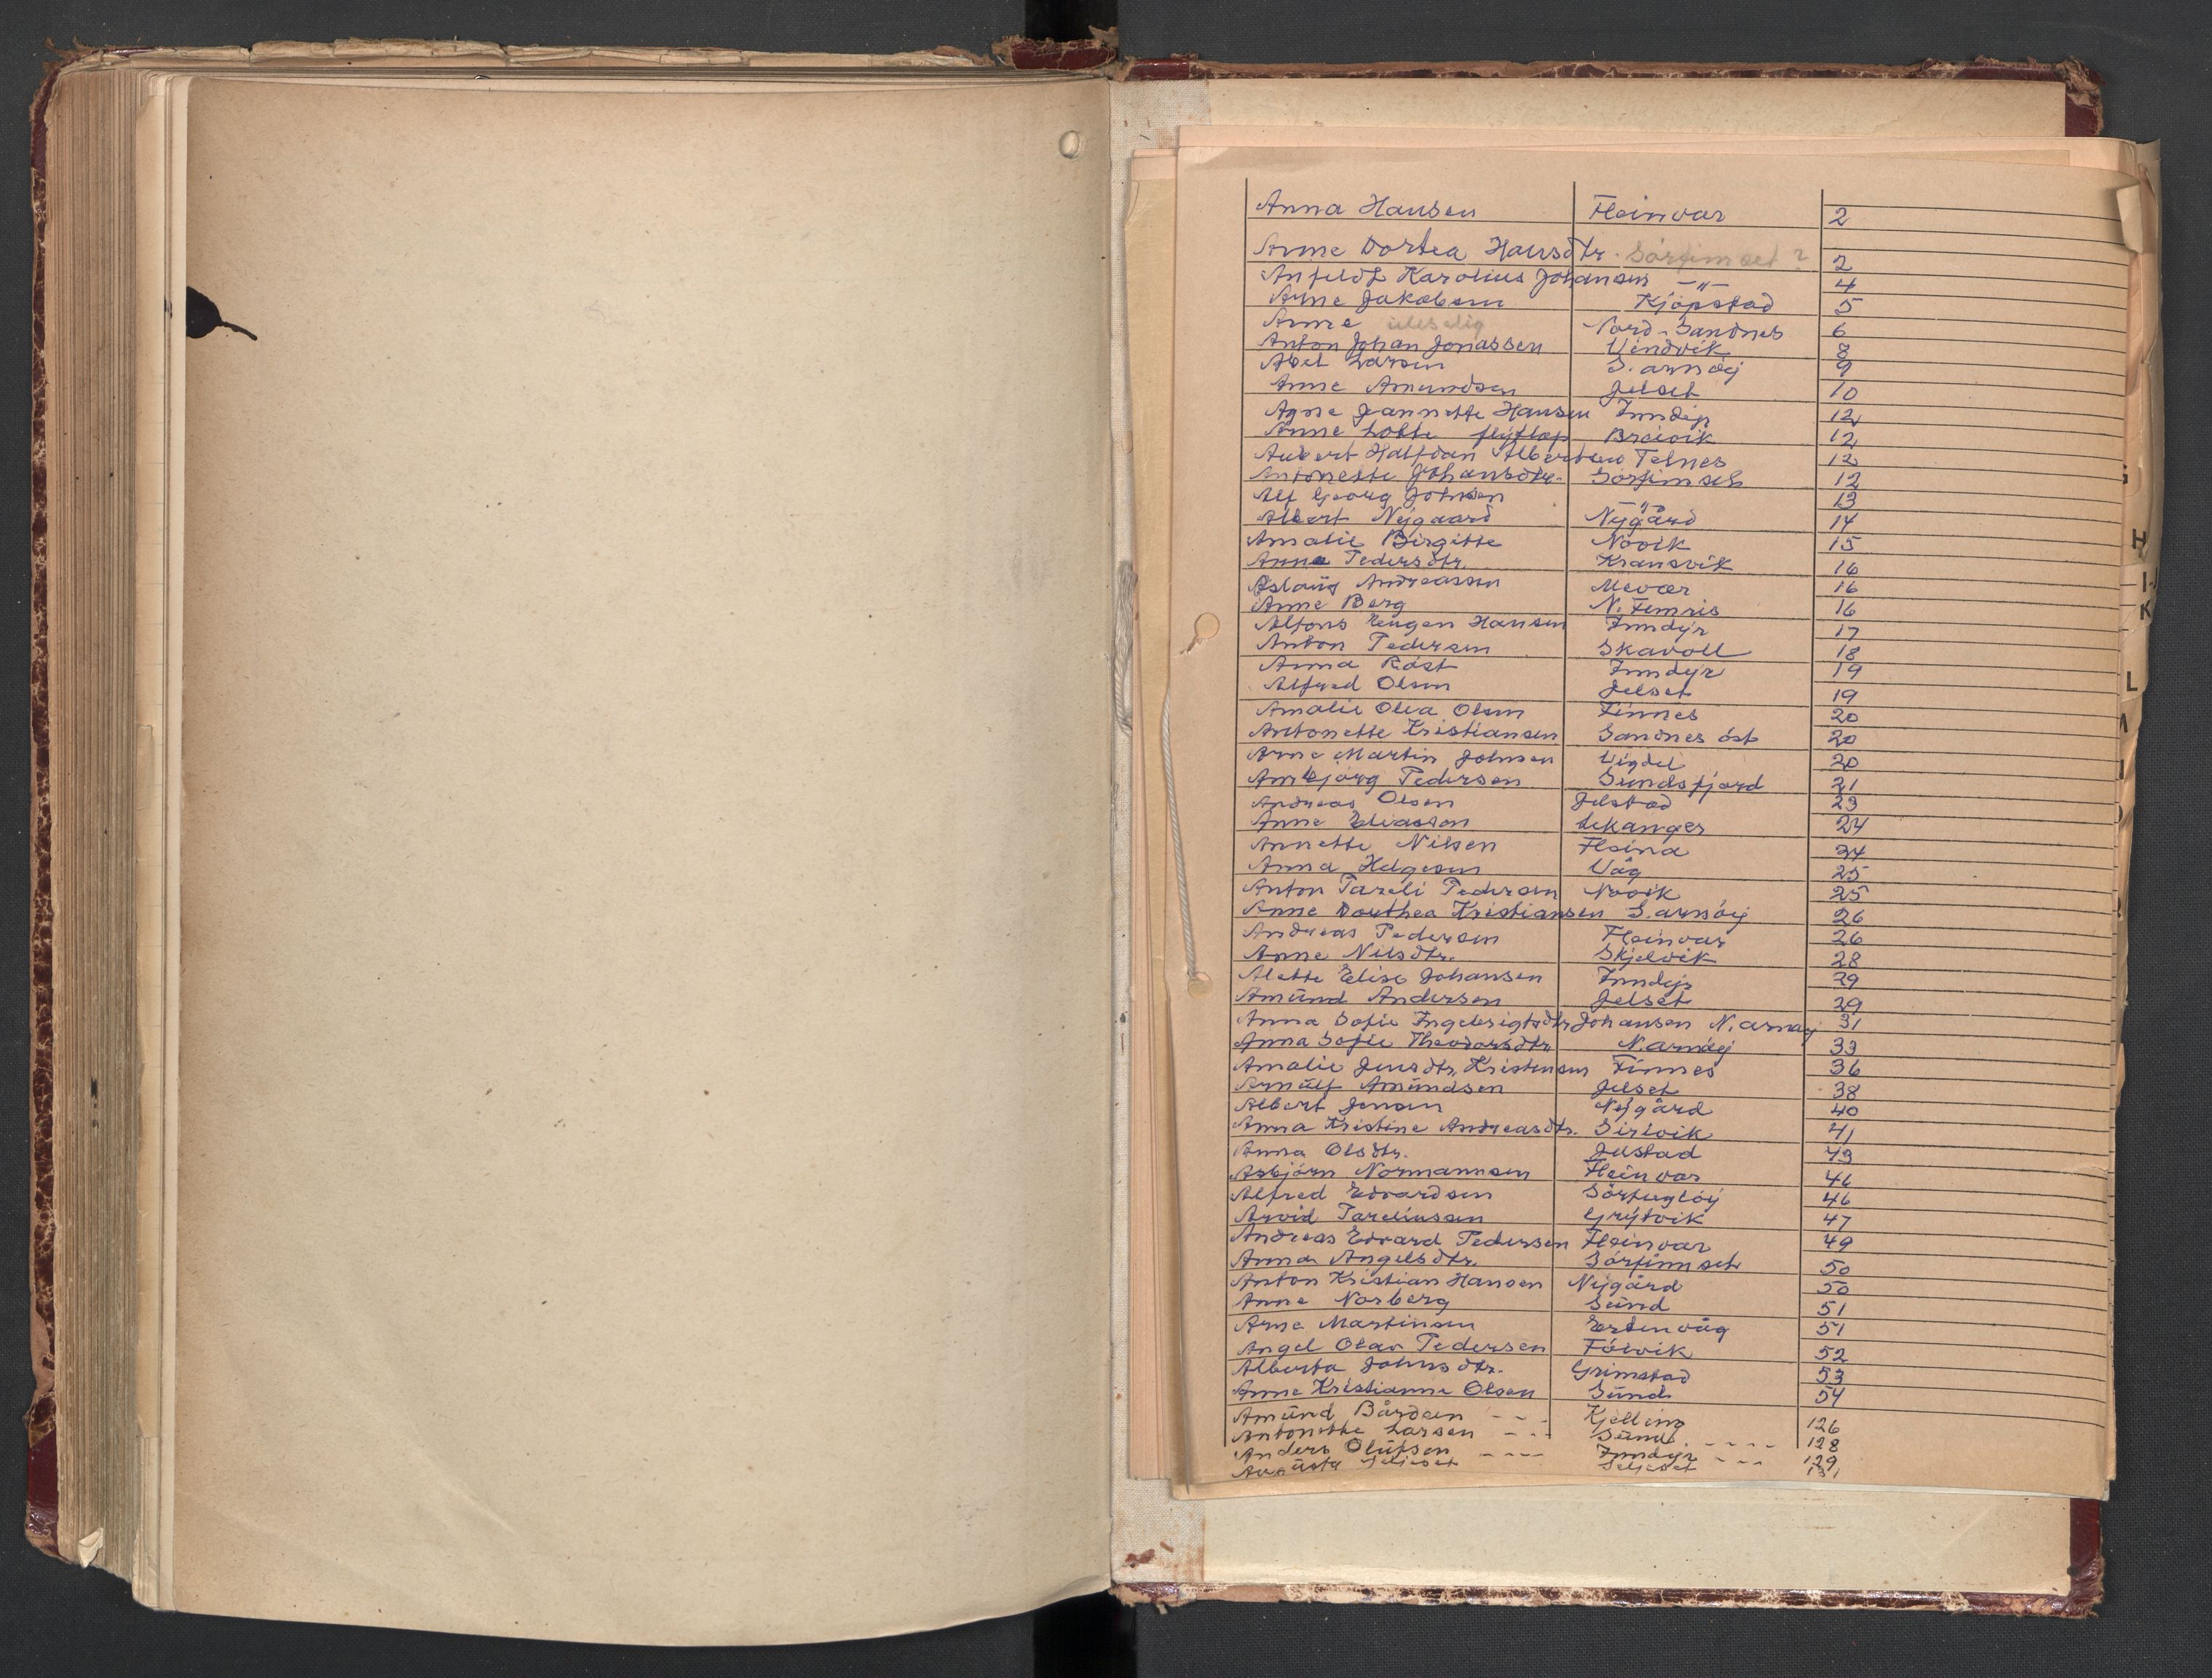 Anna Hansen Fleinvar 2
Anne Dortea Hansdtr. Sørfinset ? 2
Anfeldt Karolius Johansen -"- 4
Arne Jakobsen Kjøpstad 5
Anne uleselig Nord-Sandnes 6
Anton Johan Jonassen Vindvik 8
Axel Larsen S. arnøy 9
Anne Amundsen Jelset 10
Agne Jeannette Hansen Inndyr 12
Anne Lotte flyflap Breivik 12
Aubert Halfdan Albertsen Telnes 12
Antonette Johansdtr. Sørfinset 12
Alf Georg Johnsen -"- 13
Albert Nygaard Nygård 14
Amalie Birgitte Novik 15
Anna Pedersdtr. Kransvik 16
Aslaug Andreassen Mevær 16
Anne Berg N. Femris 16
Alfons Eugen Hansen Inndyr 17
Anton Pedersen Skavoll 18
Anna Røst Inndyr 19
Alfred Olsen Jelset 19
Amalie Olea Olsen Finnes 20
Antonette Kristiansen Sandnes øst 20
Arne Martin Johnsen Vigdel 20
Arnbjørg Pedersen Sundsfjord 21
Andreas Olsen Jelstad 23
Anne Eliassen Lekanger 24
Annette Nilsen Fleina 24
Anna Helgesen Våg 25
Anton Pareli Pedersen Novik 25
Anne Dorthea Kristiansen S. arnøy 26
Andreas Pedersen Fleinvar 26
Anne Nilsdtr. Skjelvik 28
Alette Elise Johansen Inndyr 29
Amund Andersen Jelset 29
Anna Sofie Ingebrigtsdtr Johansen N. arnøy 31
Anna Sofie Theodorsdtr N. arnøy 33
Amalie Jensdtr. Kristensen Finnes 36
Arnulf Amundsen Jelset 38
Albert Jensen Nygård 40
Anna Kristine Andreasdtr. Sirivik 41
Anna Olsdtr. Jelstad 43
Asbjørn Normannsen Fleinvar 46
Alfred Edvardsen Sørfugløy 46
Arvid Pareliussen Grytvik 47
Andreas Edvard Pedersen Fleinvar 49
Anna Angelsdtr. Sørfinnset 50
Anton Kristian Hansen Nygård 50
Anne Norberg Sund 51
Arne Martinsen Ertenvåg 51
Angel Olav Pedersen Følvik 52
Alberta Johnsdtr. Grimstad 53
Anne Kristianne Olsen Sund 54
Amund Bårdsen - - - Kjelling 126
Antonette Larsen - - - Sund - - - - 128
Anders Olufsen - - - - Inndyr - - - 129
Augusta Seljeset Seljeset 131
H
I-J
K
L